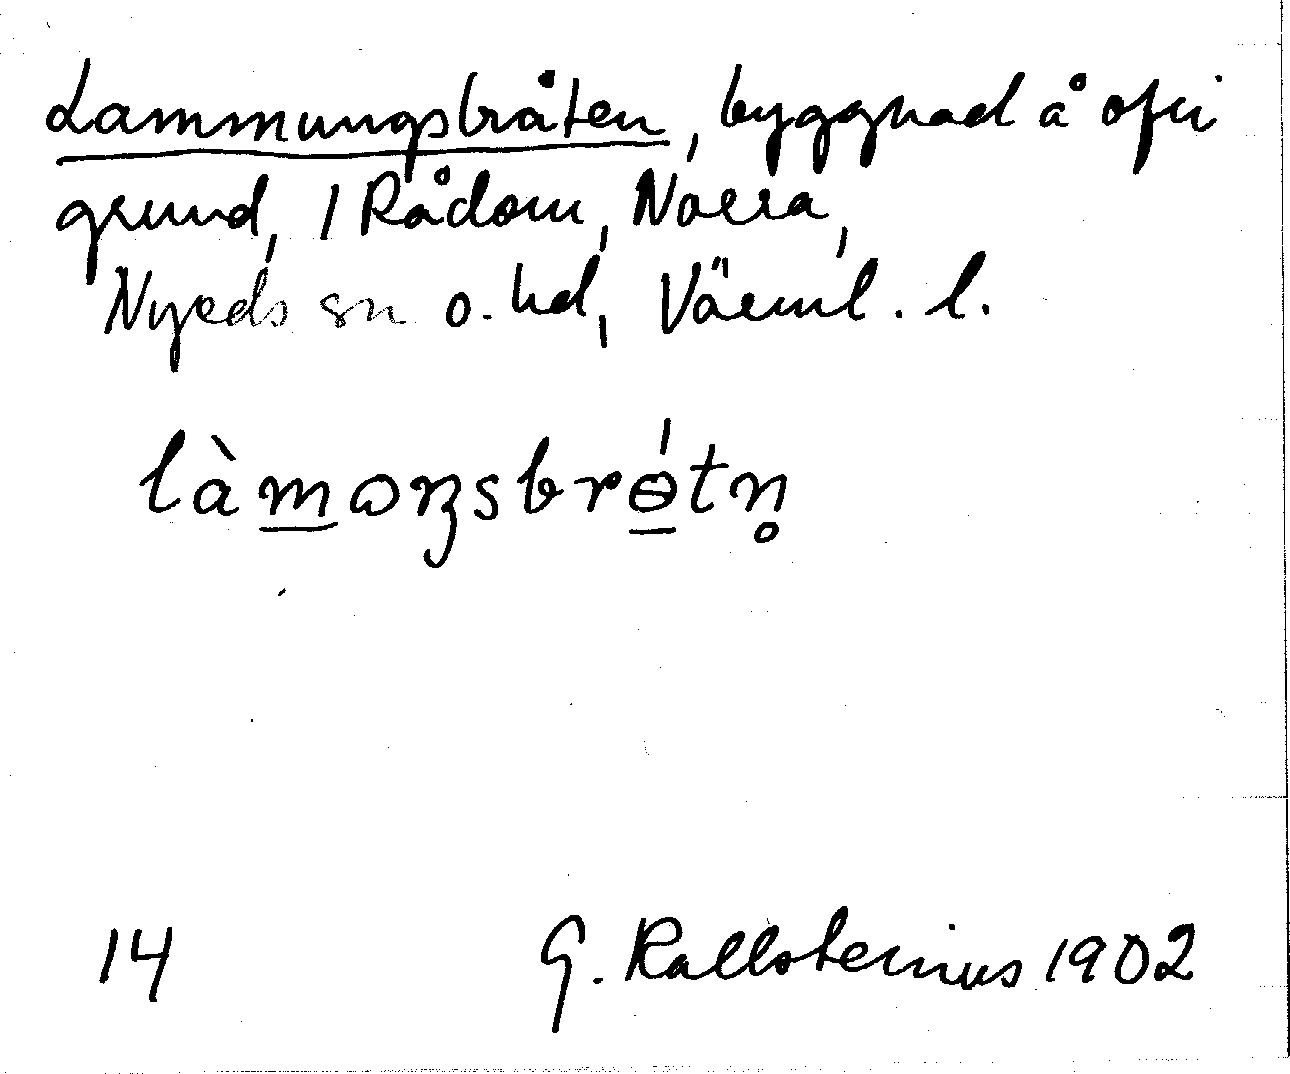 Lammungsbråten, byggnad å ofri
grund, 1 Rådom, Norra,
Nyeds sn o. hd, Värml. l.
làmɷŋsbrɵ́tn̥
14 G. Kallstenius 1902